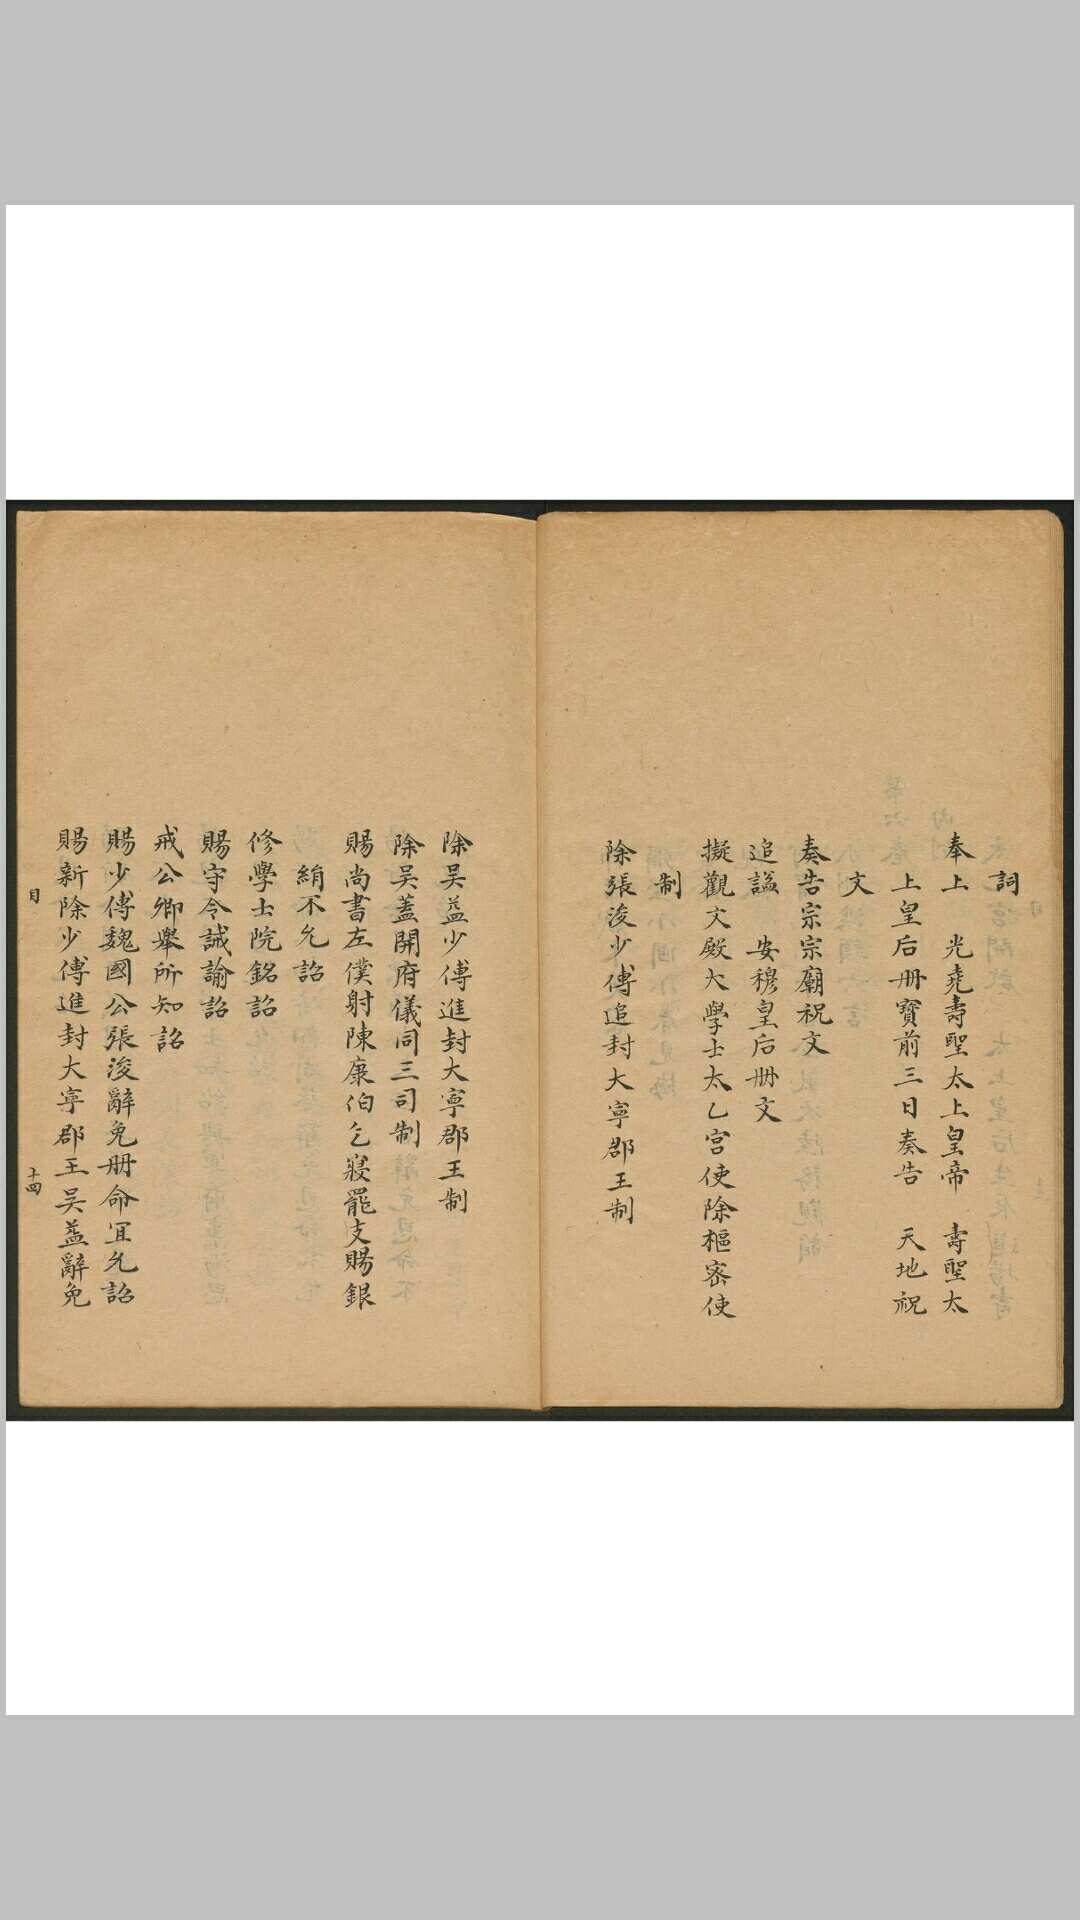 詞
奉上　光堯壽聖太上皇帝　壽聖太
上皇后册寶前三日奏告　天地祝
文
奏告宗宗廟祝文
追諡　安穆皇后册文
擬觀文殿大學士太乙宮使除樞密使
制
除張浚少傅追封大寧郡王制
除吴益少傅進封大寧郡王制
除吴蓋開府儀同三司制
賜尚書左僕射陳康伯乞寢罷支賜銀
絹不允詔
修學士院銘詔
賜守令誡諭詔
戒公卿舉所知詔
賜少傅魏國公張浚辭免册命宜允詔
賜新除少傅進封大寧郡王吴益辭免
目
十四